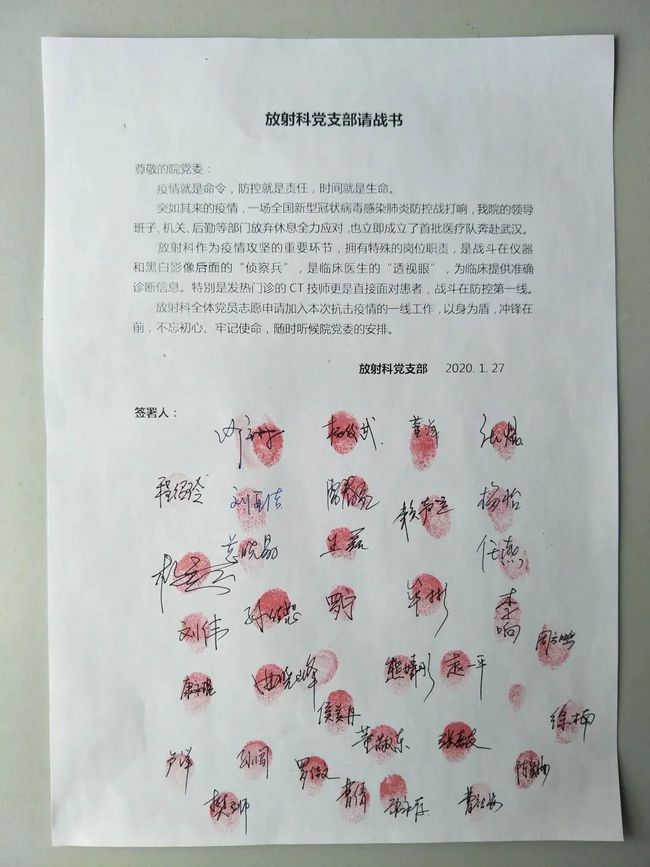 放射科党支部请战书
尊敬的院党委：
疫情就是命令，防控就是责任，时间就是生命。
突如其来的疫情，一场全国新型冠状病毒感染肺炎防控战打响，我院的领导
班子、机关、后勤等部门放弃休息全力应对，也立即成立了首批医疗队奔赴武汉。
放射科作为疫情攻坚的重要环节，拥有特殊的岗位职责，是战斗在仪器
和黑白影像后面的“侦察兵”，是临床医生的“透视眼”，为临床提供准确
诊断信息。特别是发热门诊的 CT 技师更是直接面对患者，战斗在防控第一线。
放射科全体党员志愿申请加入本次抗击疫情的一线工作，以身为盾，冲锋在
前，不忘初心、牢记使命，随时听候院党委的安排。
放射科党支部 2020. 1. 27
签署人：
杨怡
王磊 任洁
刘伟 罗宁 毕彬 李响
曲晓峰 走一平
侯美丹 徐楠
卢洋 孙闯